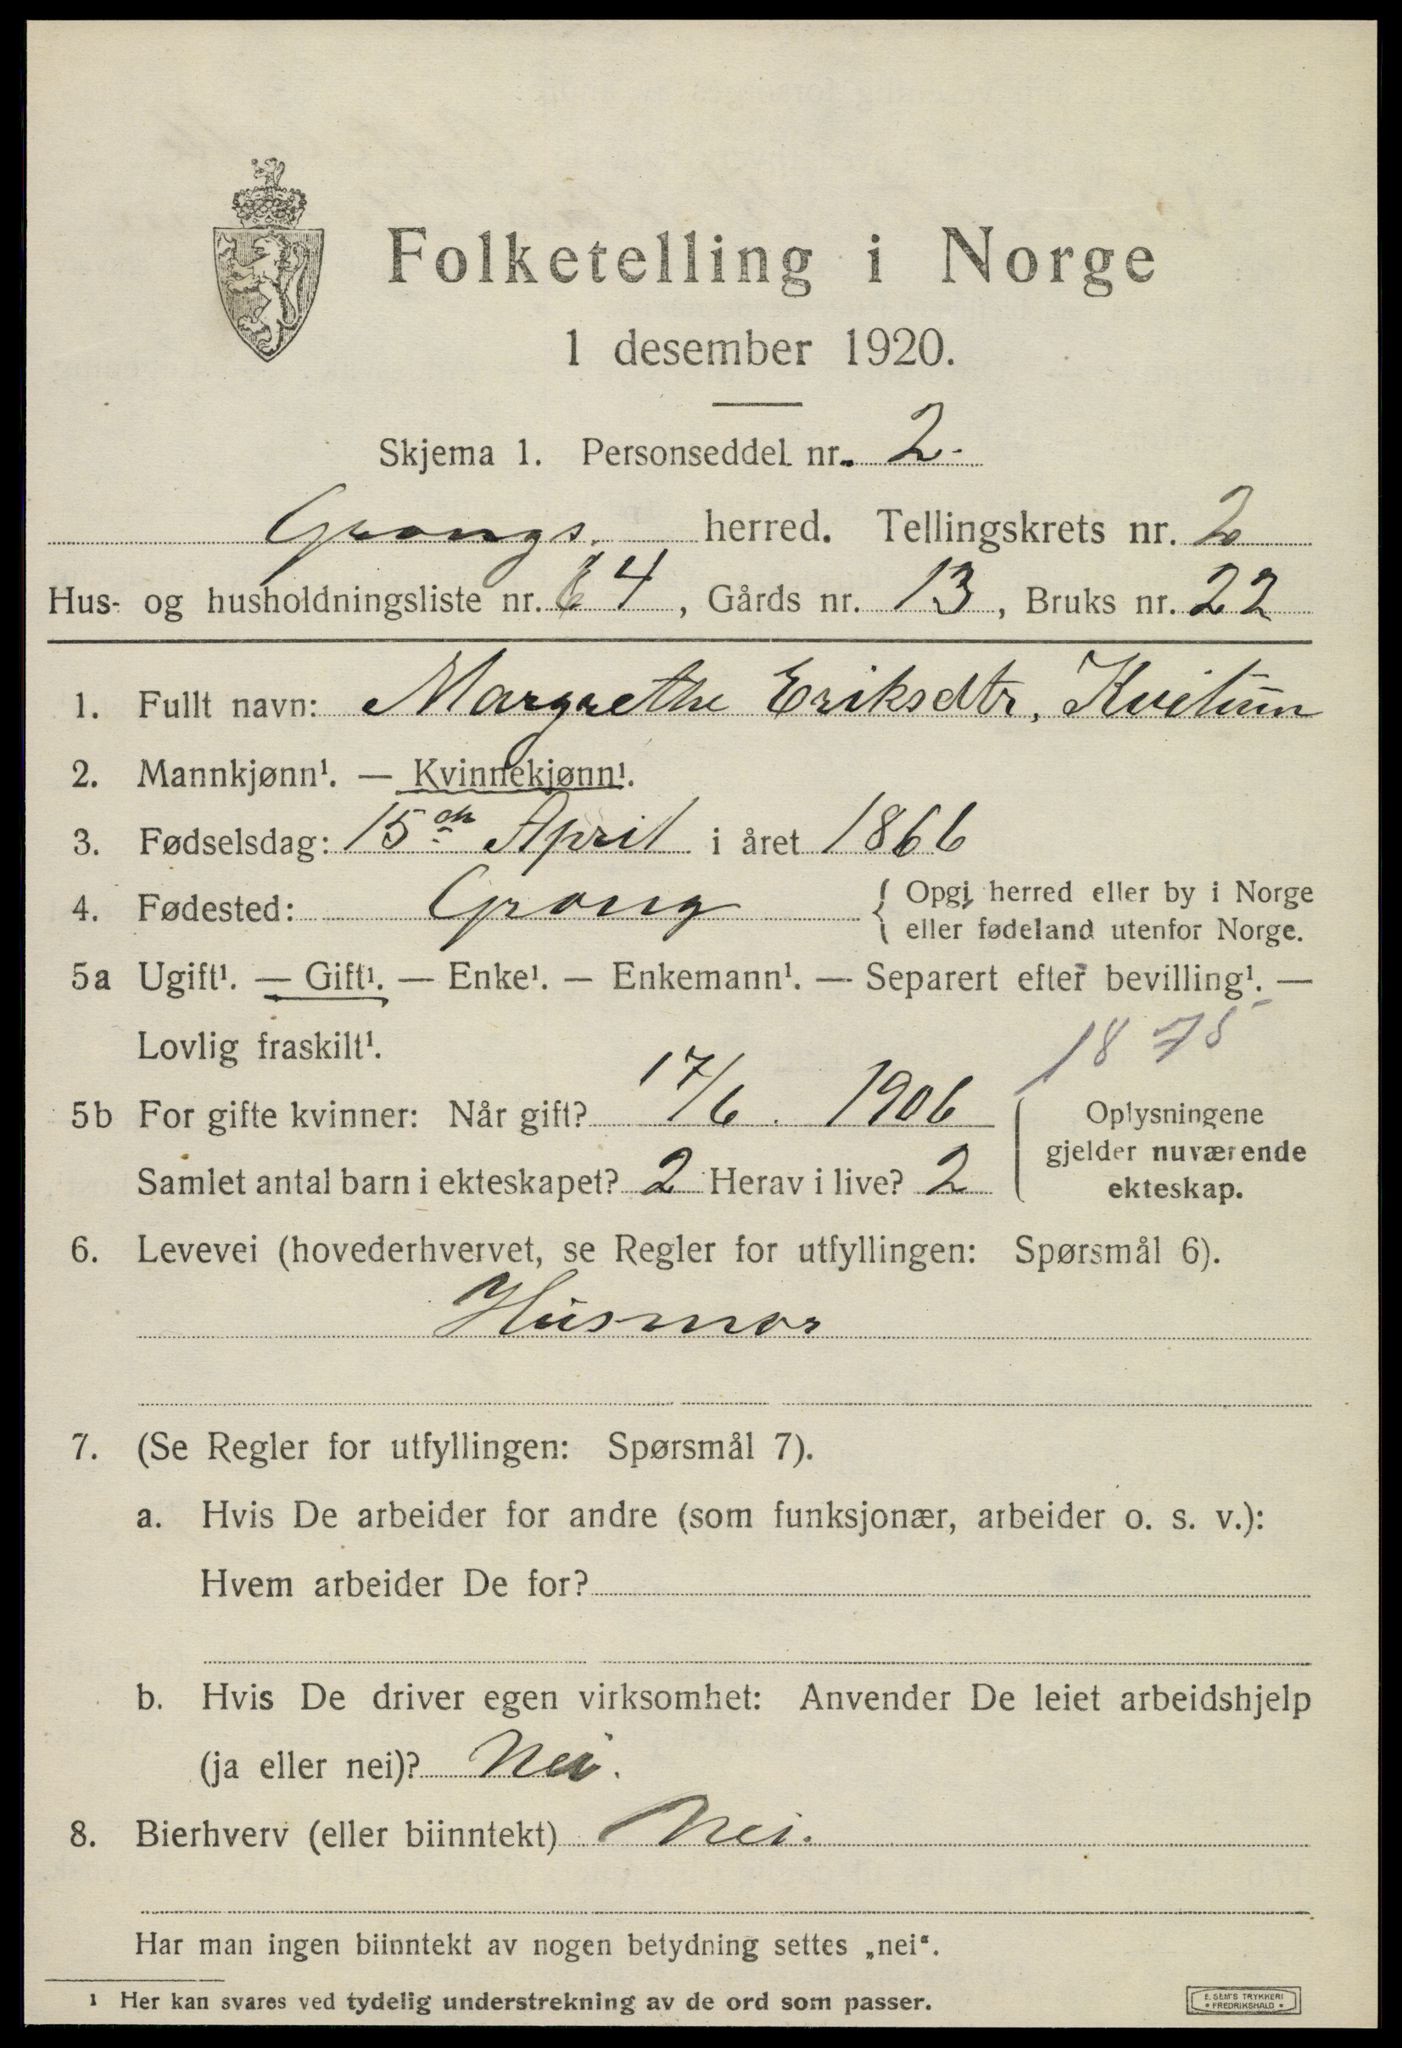 Folketelling i Norge
1 desember 1920.
Skjema 1. Personseddel nr. 2.
Grongs. herred. Tellingskrets nr. 2
Hus- og husholdningsliste nr. 64, Gårds nr. 13, Bruks nr. 22
1. Fullt navn: Margrethe Eriksdtr, Kvitum
2. Mannkjønn¹. — Kvinnekjønn¹.
3. Fødselsdag: 15de April i året 1866
4. Fødested: Grong { Opgi herred eller by i Norge
eller fødeland utenfor Norge.
5a Ugift¹. — Gift¹. — Enke¹. — Enkemann¹. — Separert efter bevilling¹. —
Lovlig fraskilt¹.
1875
5b For gifte kvinner: Når gift? 17/6. 1906
Samlet antal barn i ekteskapet? 2 Herav i live? 2
Oplysningene
gjelder nuværende
ekteskap.
6. Levevei (hovederhvervet, se Regler for utfyllingen: Spørsmål 6).
Husmor
7. (Se Regler for utfyllingen: Spørsmål 7).
a. Hvis De arbeider for andre (som funksjonær, arbeider o. s. v.):
Hvem arbeider De for?
b. Hvis De driver egen virksomhet: Anvender De leiet arbeidshjelp
(ja eller nei)? Nei.
8. Bierhverv (eller biinntekt) Nei.
Har man ingen biinntekt av nogen betydning settes „nei“.
¹ Her kan svares ved tydelig understrekning av de ord som passer.
E. SEM'S TRYKKERI
• FREDRIKSHALD •